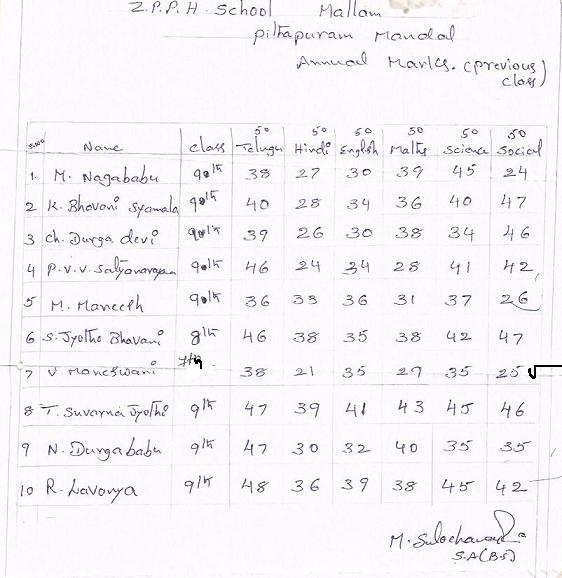 Z.P.P.H. School Mallam
pithapuram Mandal
Annual Marks. (previous
class)
S.No Name class 50 Telugu 50 Hindi 50 English 50 Maths 50 Science 50 Social
1. M. Nagababu 38 27 30 39 45 24
2 K. Bhavani Syamala 40 28 34 36 40 47
3 Ch. Durga devi 39 26 30 38 34 46
4 P.V.V. Satyanarayana 46 24 34 28 41 42
5 M. Maneesh 36 33 36 31 37 26
6 S. Jyothi Bhavani 8th 46 38 35 38 42 47
7 V. Maneswani 7th 38 21 35 29 35 25 ✓
8 T. Suvarna Jyothi 9th 47 39 41 43 45 46
9 N. Durgababu 9th 47 30 32 40 35 35
10 R. Lavanya 9th 48 36 39 38 45 42
M. Sulochana
S.A(B.S)